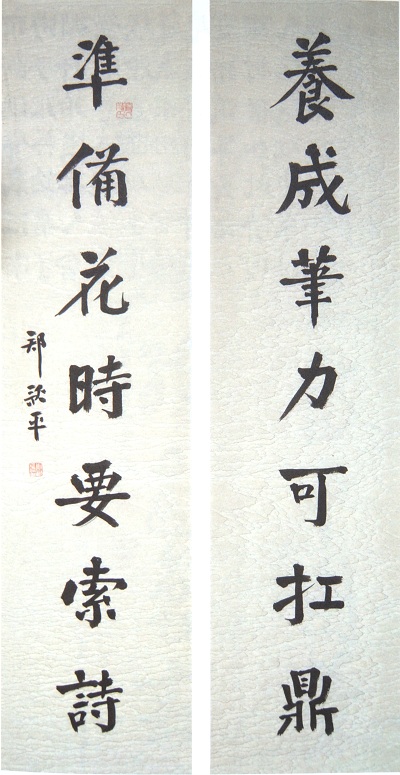 養成筆力可扛鼎
準備花時要索詩